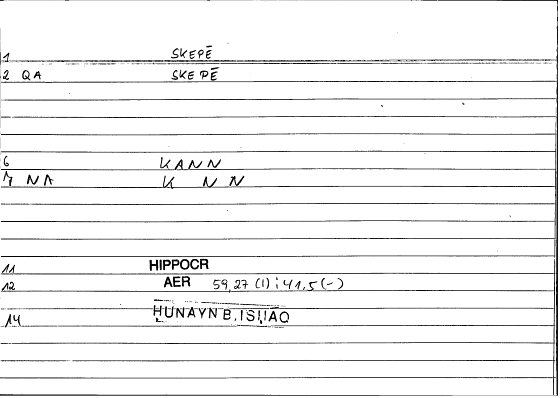 1 SKEPĒ
2 QA SKEPĒ
6 KANN
7 NA K NN
11 HIPPOCR
12 AER 59,27 (1) ; 41,5 (-)
14 ḤUNAYN B. ISḤĀQ